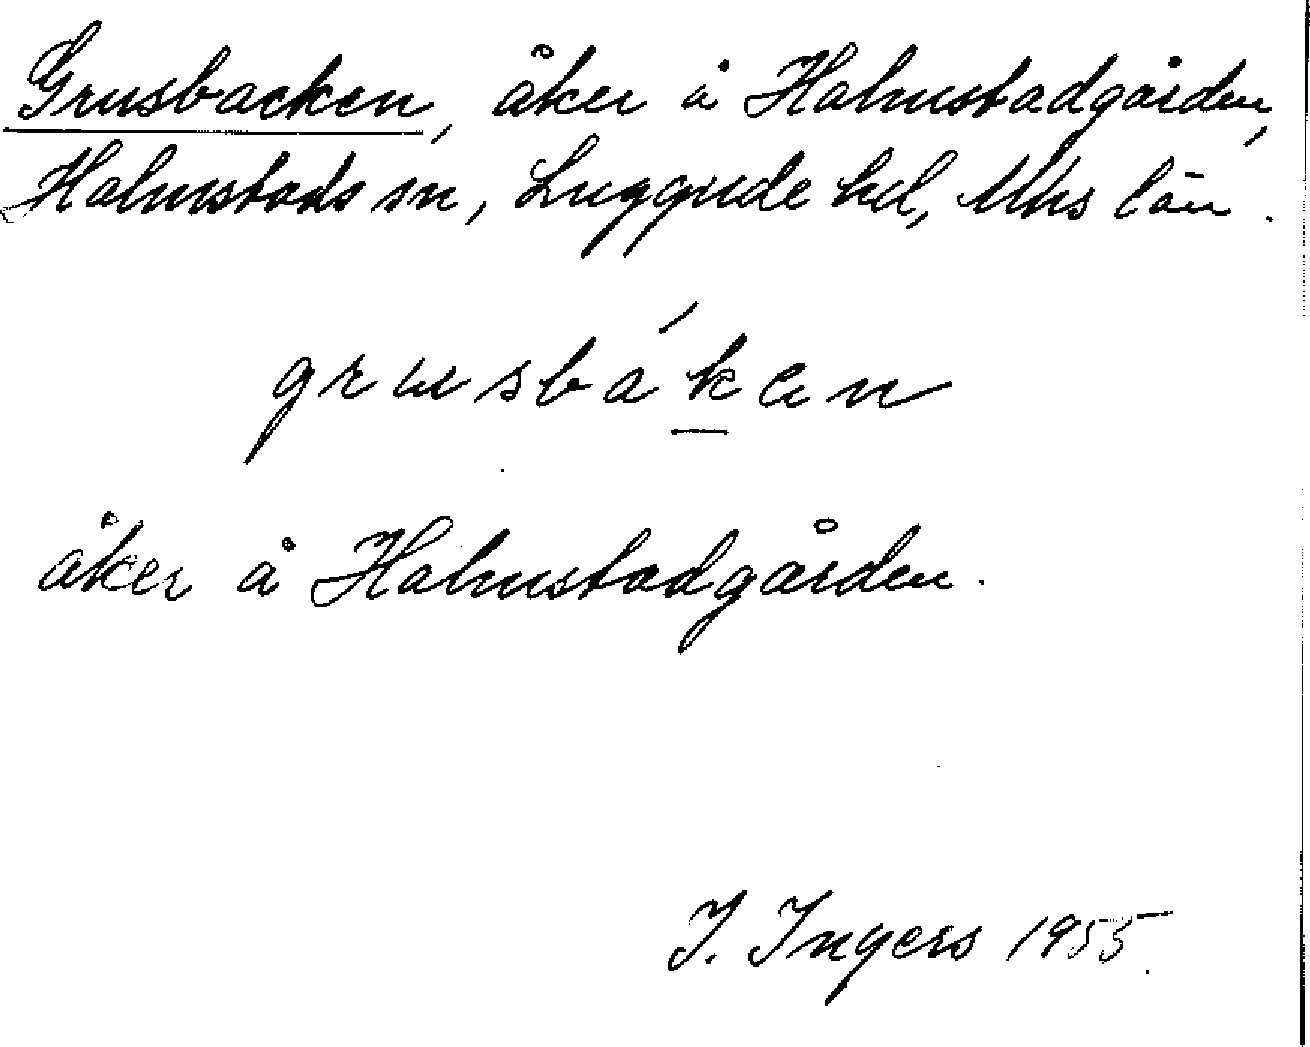 Grusbacken, åker å Halmstadgården,
Halmstads sn, Luggude hd, Mhs län.
grusbákan
åker å Halmstadgården.
I. Ingers 1955.